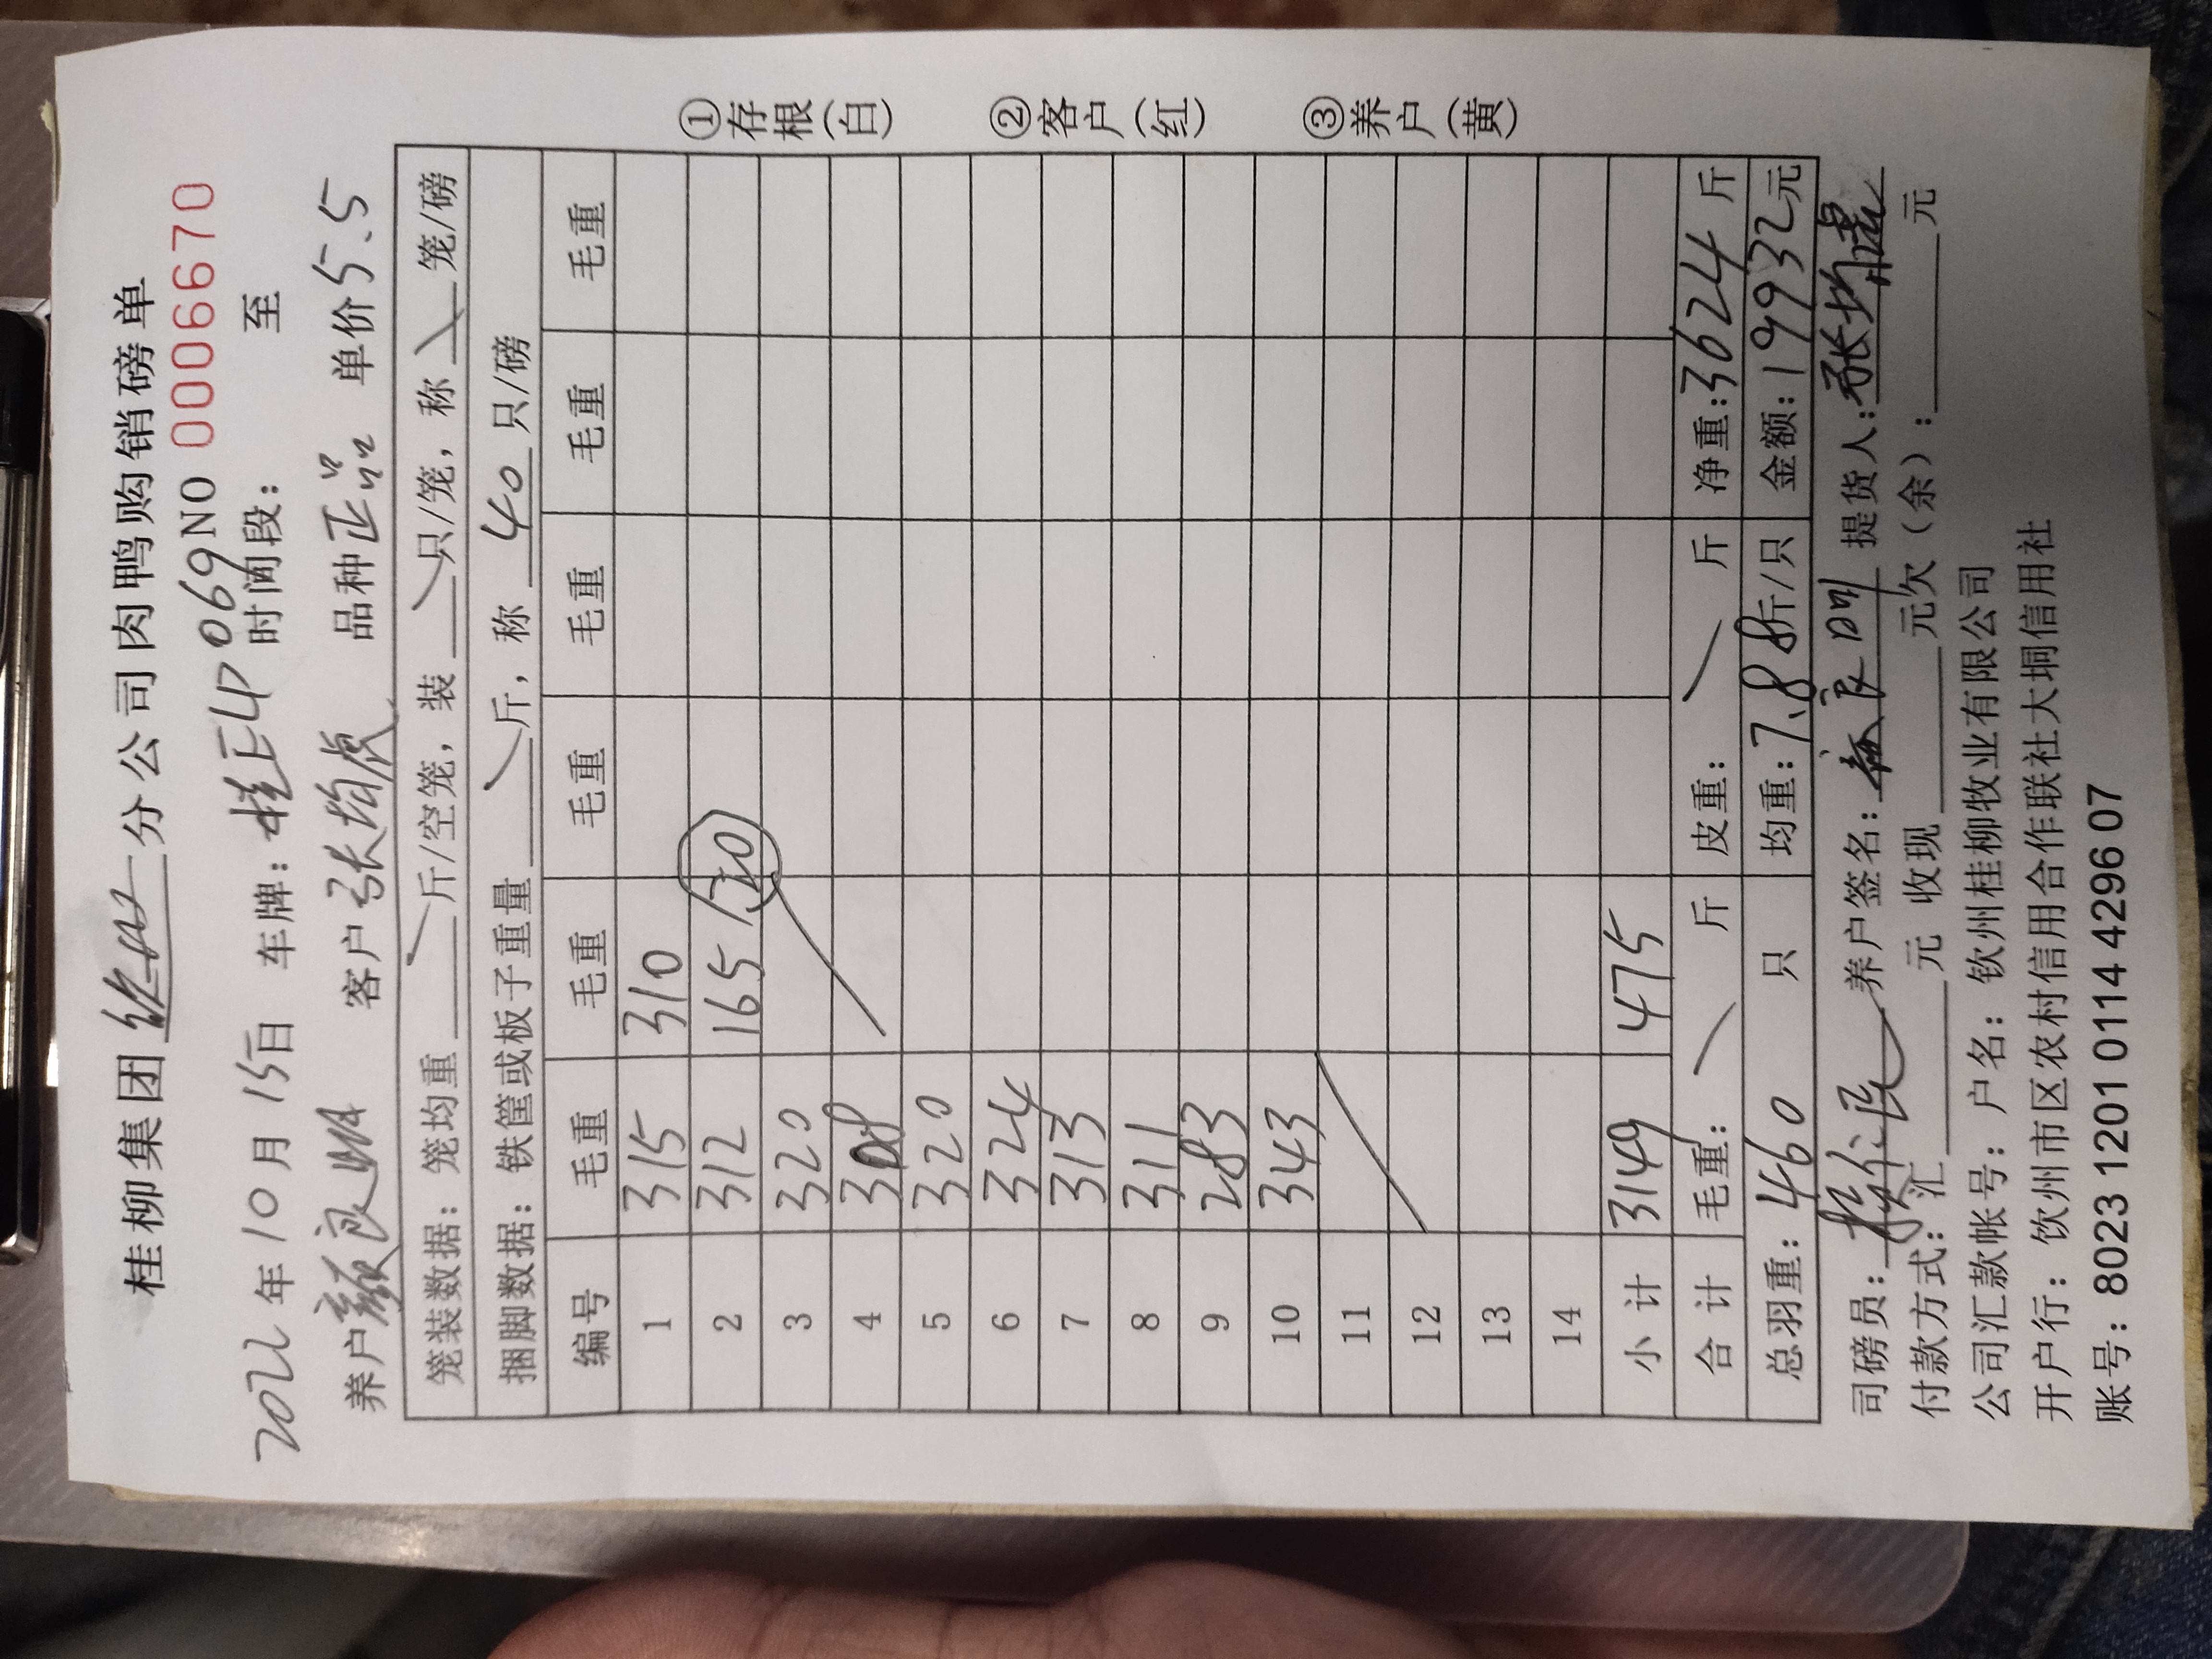 桂柳集团 分公司肉鸭购销磅单
2022年10月15日 车牌: 桂E4P069 NO 0006670
时间段: 至
养户 颜良 客户 张均虎 品种 正品 单价 5.5
笼装数据: 笼均重 斤/空笼, 装 只/笼, 称 笼/磅
捆脚数据: 铁筐或板子重量 斤, 称 40 只/磅
编号 毛重 毛重 毛重 毛重 毛重 毛重
1 315 310
2 312 165 /20
3 320
4 308
5 320
6 324
7 313
8 311
9 283
10 343
11
12
13
14
小计 3149 475
合计 毛重: 斤 皮重: 斤 净重: 3624 斤
总羽重: 460 只 均重: 7.88斤/只 金额: 19932元
司磅员: 养户签名: 提货人: 张均虎
付款方式: 汇 元 收现 元欠(余): 元
公司汇款帐号: 户名: 钦州桂柳牧业有限公司
开户行: 钦州市区农村信用合作联社大垌信用社
账号: 8023 1201 0114 4296 07
①存根(白)
②客户(红)
③养户(黄)